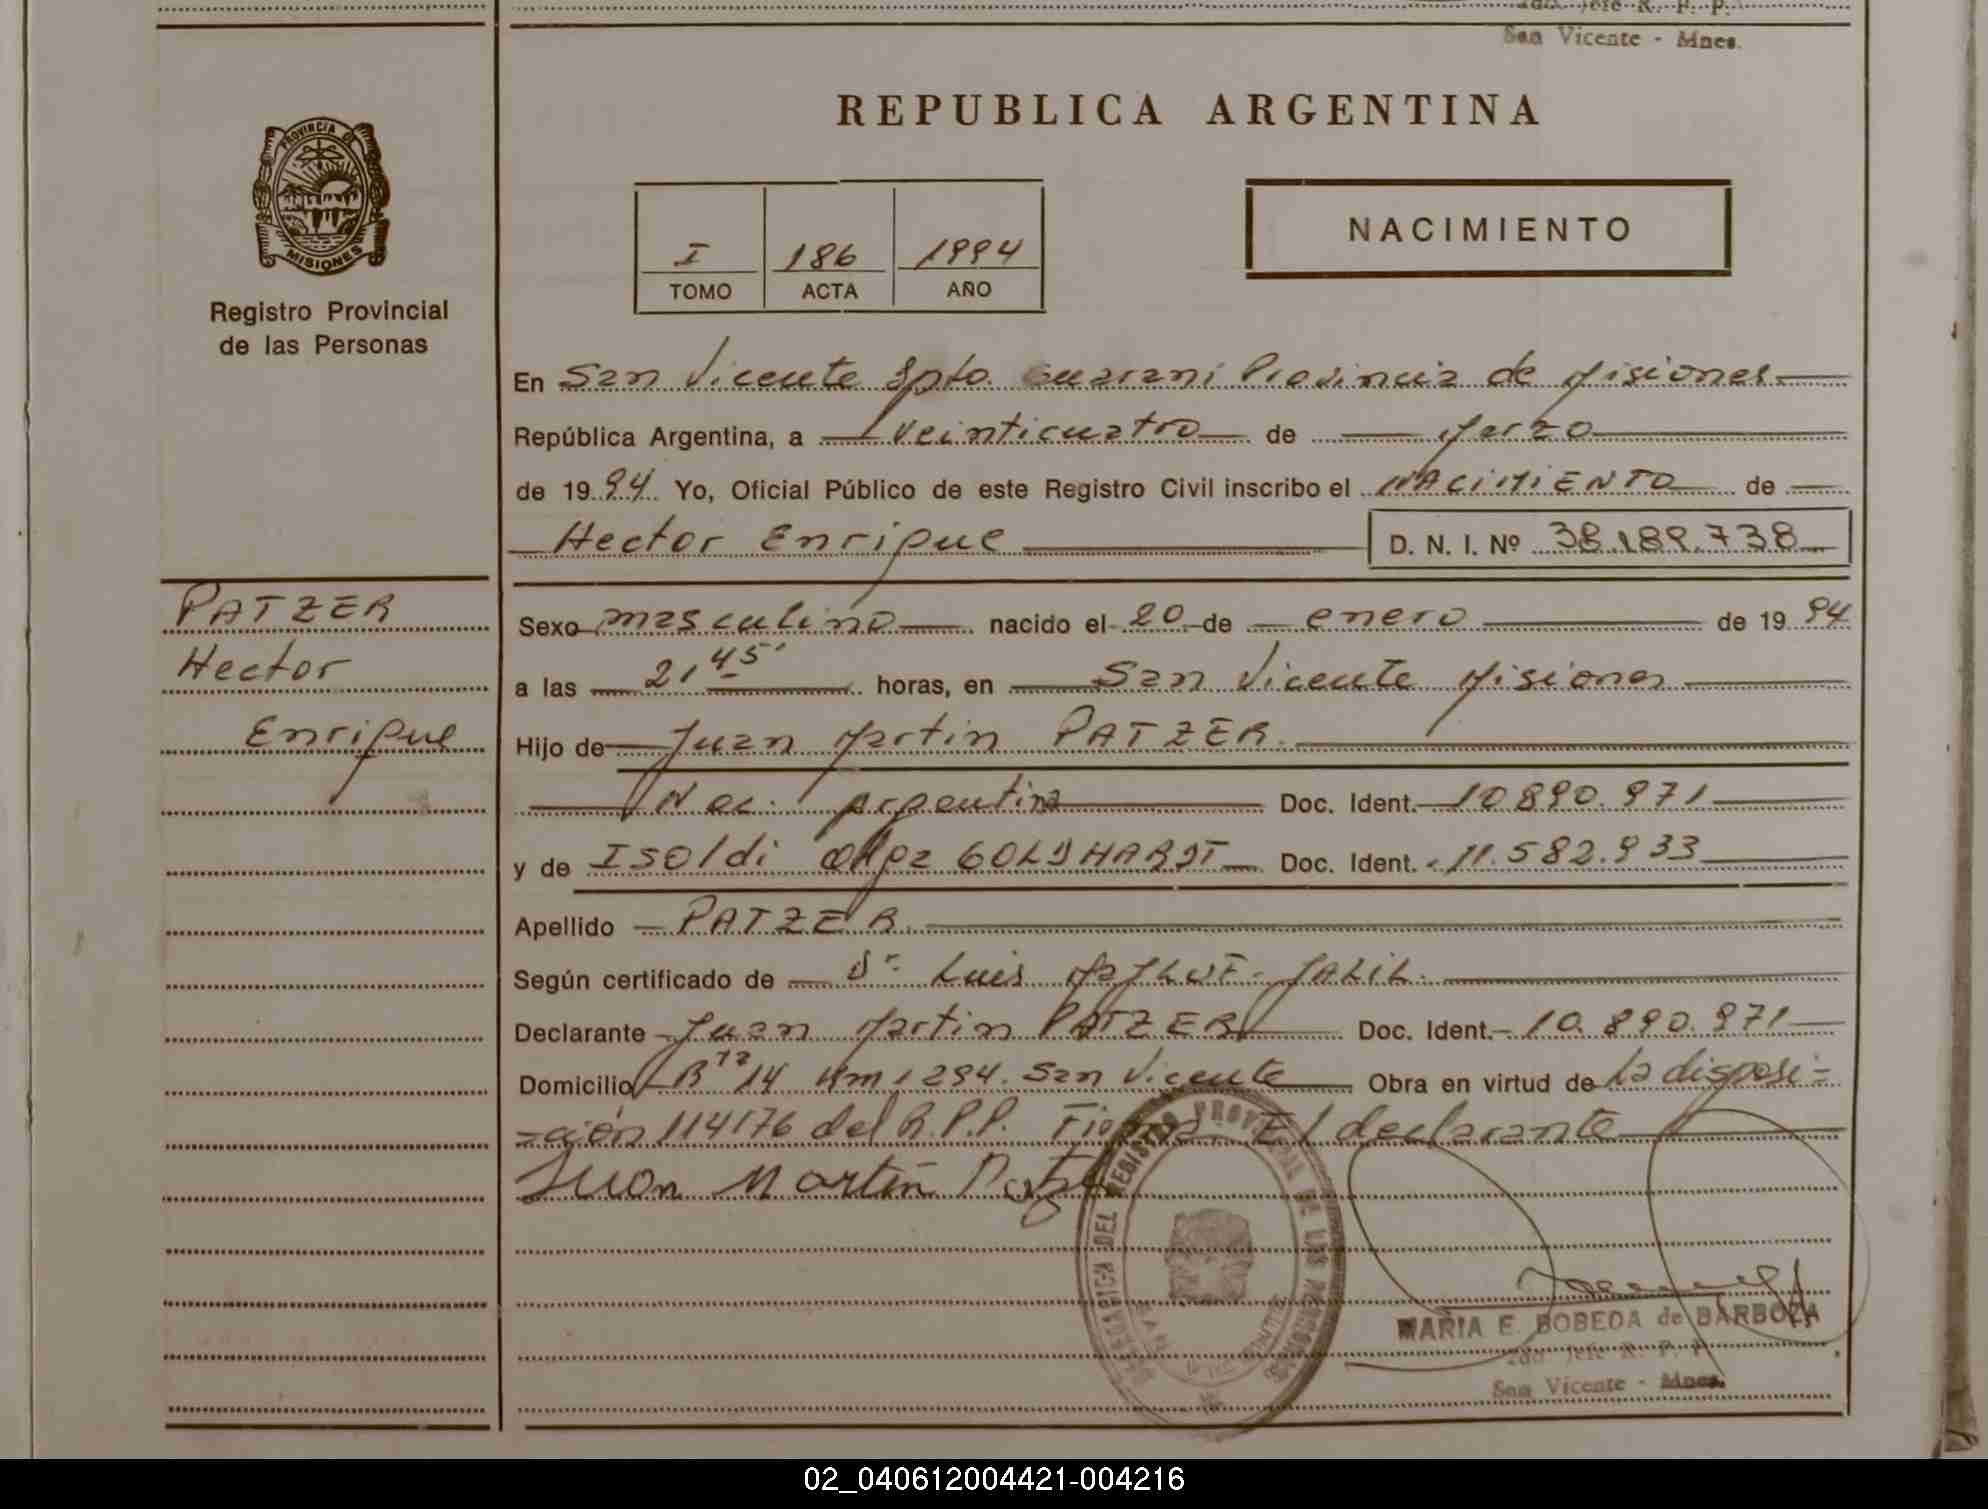 2do. Jefe R. P. P.
San Vicente - Mnes.
PROVINCIA DE
MISIONES
Registro Provincial
de las Personas
REPUBLICA ARGENTINA
I 186 1994
TOMO ACTA AÑO
NACIMIENTO
En San Vicente Dpto. Guarani Provincia de Misiones
República Argentina, a Veinticuatro de Marzo
de 1994 Yo, Oficial Público de este Registro Civil inscribo el NACIMIENTO de
Hector Enrique D. N. I. Nº 38.189.738
PATZER
Hector
Enrique
Sexo masculino nacido el 20 de enero de 1994
a las 21 45' horas, en San Vicente Misiones
Hijo de Juan Martin PATZER.
Nac. Argentina Doc. Ident. 10.890.971
y de ISOLDI Olga GOLDHARDT Doc. Ident. 11.582.933
Apellido PATZER.
Según certificado de Dr. Luis JALIL.
Declarante Juan Martin PATZER Doc. Ident. 10.890.971
Domicilio R 14 Km 1294. San Vicente Obra en virtud de la disposi-
-ción 114/76 del R.P.P. Firma: El declarante
Juan Martin Patzer
DELEGACION DEL REGISTRO PROVINCIAL DE LAS PERSONAS
SAN VICENTE
MARIA E. BOBEDA de BARBOZA
2do. Jefe R. P. P.
San Vicente - Mnes.
02_040612004421-004216